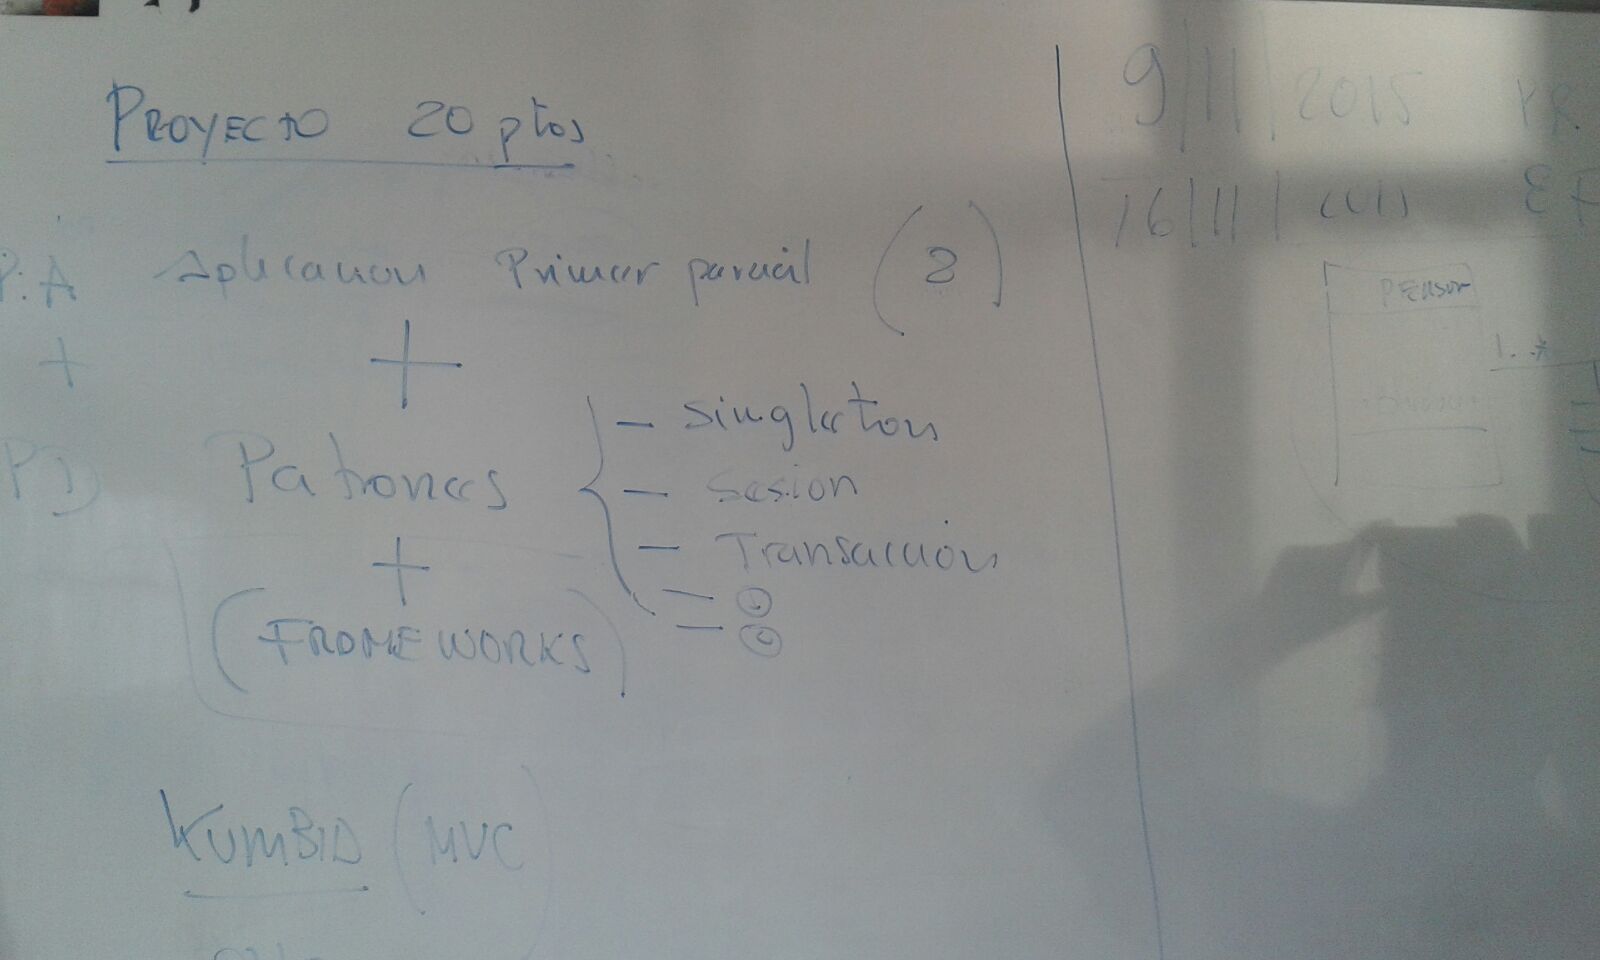 PROYECTO 20 ptos
P.A Aplicacion Primer parcial (2)
+ +
PD Patrones { - singleton
- Sesion
- Transaccion
+
(FRAMEWORKS)
KUMBIA (MVC)
9/11/2015
16/11/
PERSON
1..*